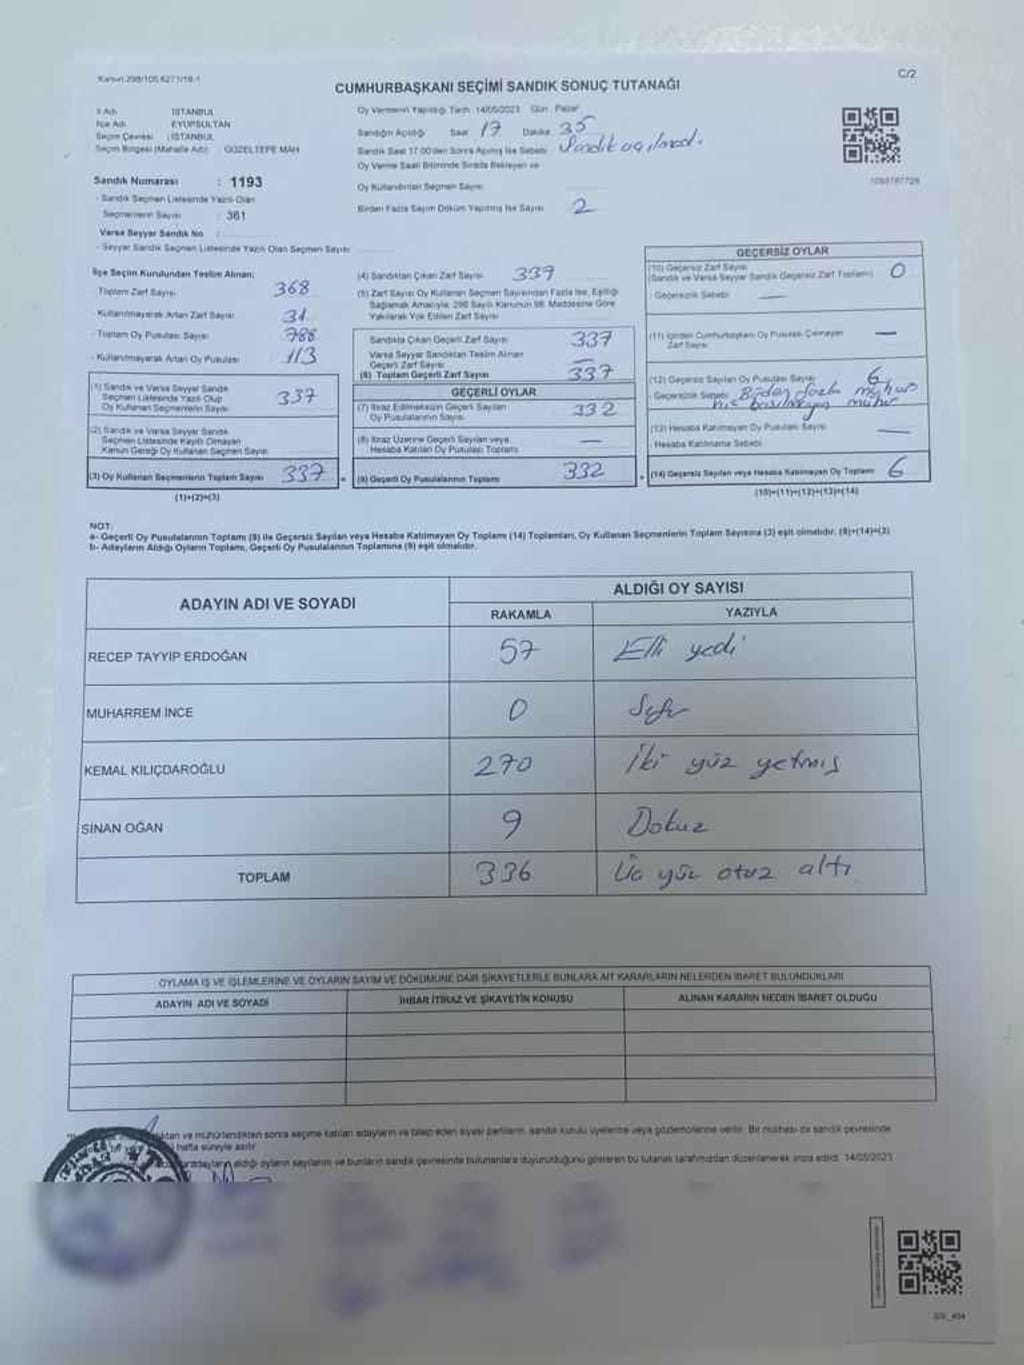 Kanun:298/105,6271/19-1
C/2
CUMHURBAŞKANI SEÇİMİ SANDIK SONUÇ TUTANAĞI
İl Adı : İSTANBUL
İlçe Adı : EYÜPSULTAN
Seçim Çevresi : İSTANBUL
Seçim Bölgesi (Mahalle Adı) : GÜZELTEPE MAH
Sandık Numarası : 1193
- Sandık Seçmen Listesinde Yazılı Olan
Seçmenlerin Sayısı : 361
Varsa Seyyar Sandık No :
- Seyyar Sandık Seçmen Listesinde Yazılı Olan Seçmen Sayısı
Oy Vermenin Yapıldığı Tarih: 14/05/2023 Gün: Pazar
Sandığın Açıldığı Saat 17 Dakika 35
Sandık Saat 17:00'den Sonra Açılmış İse Sebebi: Sandık açılmadı.
Oy Verme Saati Bitiminde Sırada Bekleyen ve
Oy Kullandırılan Seçmen Sayısı
Birden Fazla Sayım Döküm Yapılmış İse Sayısı 2
1093787726
İlçe Seçim Kurulundan Teslim Alınan;
- Toplam Zarf Sayısı 368
- Kullanılmayarak Artan Zarf Sayısı 31
- Toplam Oy Pusulası Sayısı 788
- Kullanılmayarak Artan Oy Pusulası 113
(1) Sandık ve Varsa Seyyar Sandık
Seçmen Listesinde Yazılı Olup
Oy Kullanan Seçmenlerin Sayısı 337
(2) Sandık ve Varsa Seyyar Sandık
Seçmen Listesinde Kayıtlı Olmayan
Kanun Gereği Oy Kullanan Seçmen Sayısı
(3) Oy Kullanan Seçmenlerin Toplam Sayısı 337
(1)+(2)=(3)
(4) Sandıktan Çıkan Zarf Sayısı 337
(5) Zarf Sayısı Oy Kullanan Seçmen Sayısından Fazla İse, Eşitliği
Sağlamak Amacıyla, 298 Sayılı Kanunun 98. Maddesine Göre
Yakılarak Yok Edilen Zarf Sayısı
Sandıkta Çıkan Geçerli Zarf Sayısı 337
Varsa Seyyar Sandıktan Teslim Alınan
Geçerli Zarf Sayısı —
(6) Toplam Geçerli Zarf Sayısı 337
GEÇERLİ OYLAR
(7) İtiraz Edilmeksizin Geçerli Sayılan
Oy Pusulalarının Sayısı 332
(8) İtiraz Üzerine Geçerli Sayılan veya
Hesaba Katılan Oy Pusulası Toplamı —
= (9) Geçerli Oy Pusulalarının Toplamı 332
GEÇERSİZ OYLAR
(10) Geçersiz Zarf Sayısı
(Sandık ve Varsa Seyyar Sandık Geçersiz Zarf Toplamı) 0
- Geçersizlik Sebebi —
(11) İçinden Cumhurbaşkanı Oy Pusulası Çıkmayan
Zarf Sayısı —
(12) Geçersiz Sayılan Oy Pusulası Sayısı 6
- Geçersizlik Sebebi Birden fazla mühür
hiç basılmayan mühür
(13) Hesaba Katılmayan Oy Pusulası Sayısı —
- Hesaba Katılmama Sebebi
+ (14) Geçersiz Sayılan veya Hesaba Katılmayan Oy Toplamı 6
(10)+(11)+(12)+(13)=(14)
NOT:
a- Geçerli Oy Pusulalarının Toplamı (9) ile Geçersiz Sayılan veya Hesaba Katılmayan Oy Toplamı (14) Toplamları, Oy Kullanan Seçmenlerin Toplam Sayısına (3) eşit olmalıdır. (9)+(14)=(3)
b- Adayların Aldığı Oyların Toplamı, Geçerli Oy Pusulalarının Toplamına (9) eşit olmalıdır.
ADAYIN ADI VE SOYADI
ALDIĞI OY SAYISI
RAKAMLA YAZIYLA
RECEP TAYYİP ERDOĞAN 57 Elli yedi
MUHARREM İNCE 0 Sıfır
KEMAL KILIÇDAROĞLU 270 İki yüz yetmiş
SİNAN OĞAN 9 Dokuz
TOPLAM 336 Üç yüz otuz altı
OYLAMA İŞ VE İŞLEMLERİNE VE OYLARIN SAYIM VE DÖKÜMÜNE DAİR ŞİKAYETLERLE BUNLARA AİT KARARLARIN NELERDEN İBARET BULUNDUKLARI
ADAYIN ADI VE SOYADI İHBAR İTİRAZ VE ŞİKAYETİN KONUSU ALINAN KARARIN NEDEN İBARET OLDUĞU
ve mühürlendikten sonra seçime katılan adayların ve talep eden siyasi partilerin, sandık kurulu üyelerine veya gözlemcilerine verilir. Bir nüshası da sandık çevresinde
hafta süreyle asılır
adayların aldığı oyların sayılarını ve bunların sandık çevresinde bulunanlara duyurulduğunu gösteren bu tutanak tarafımızdan düzenlenerek imza edildi. 14/05/2023